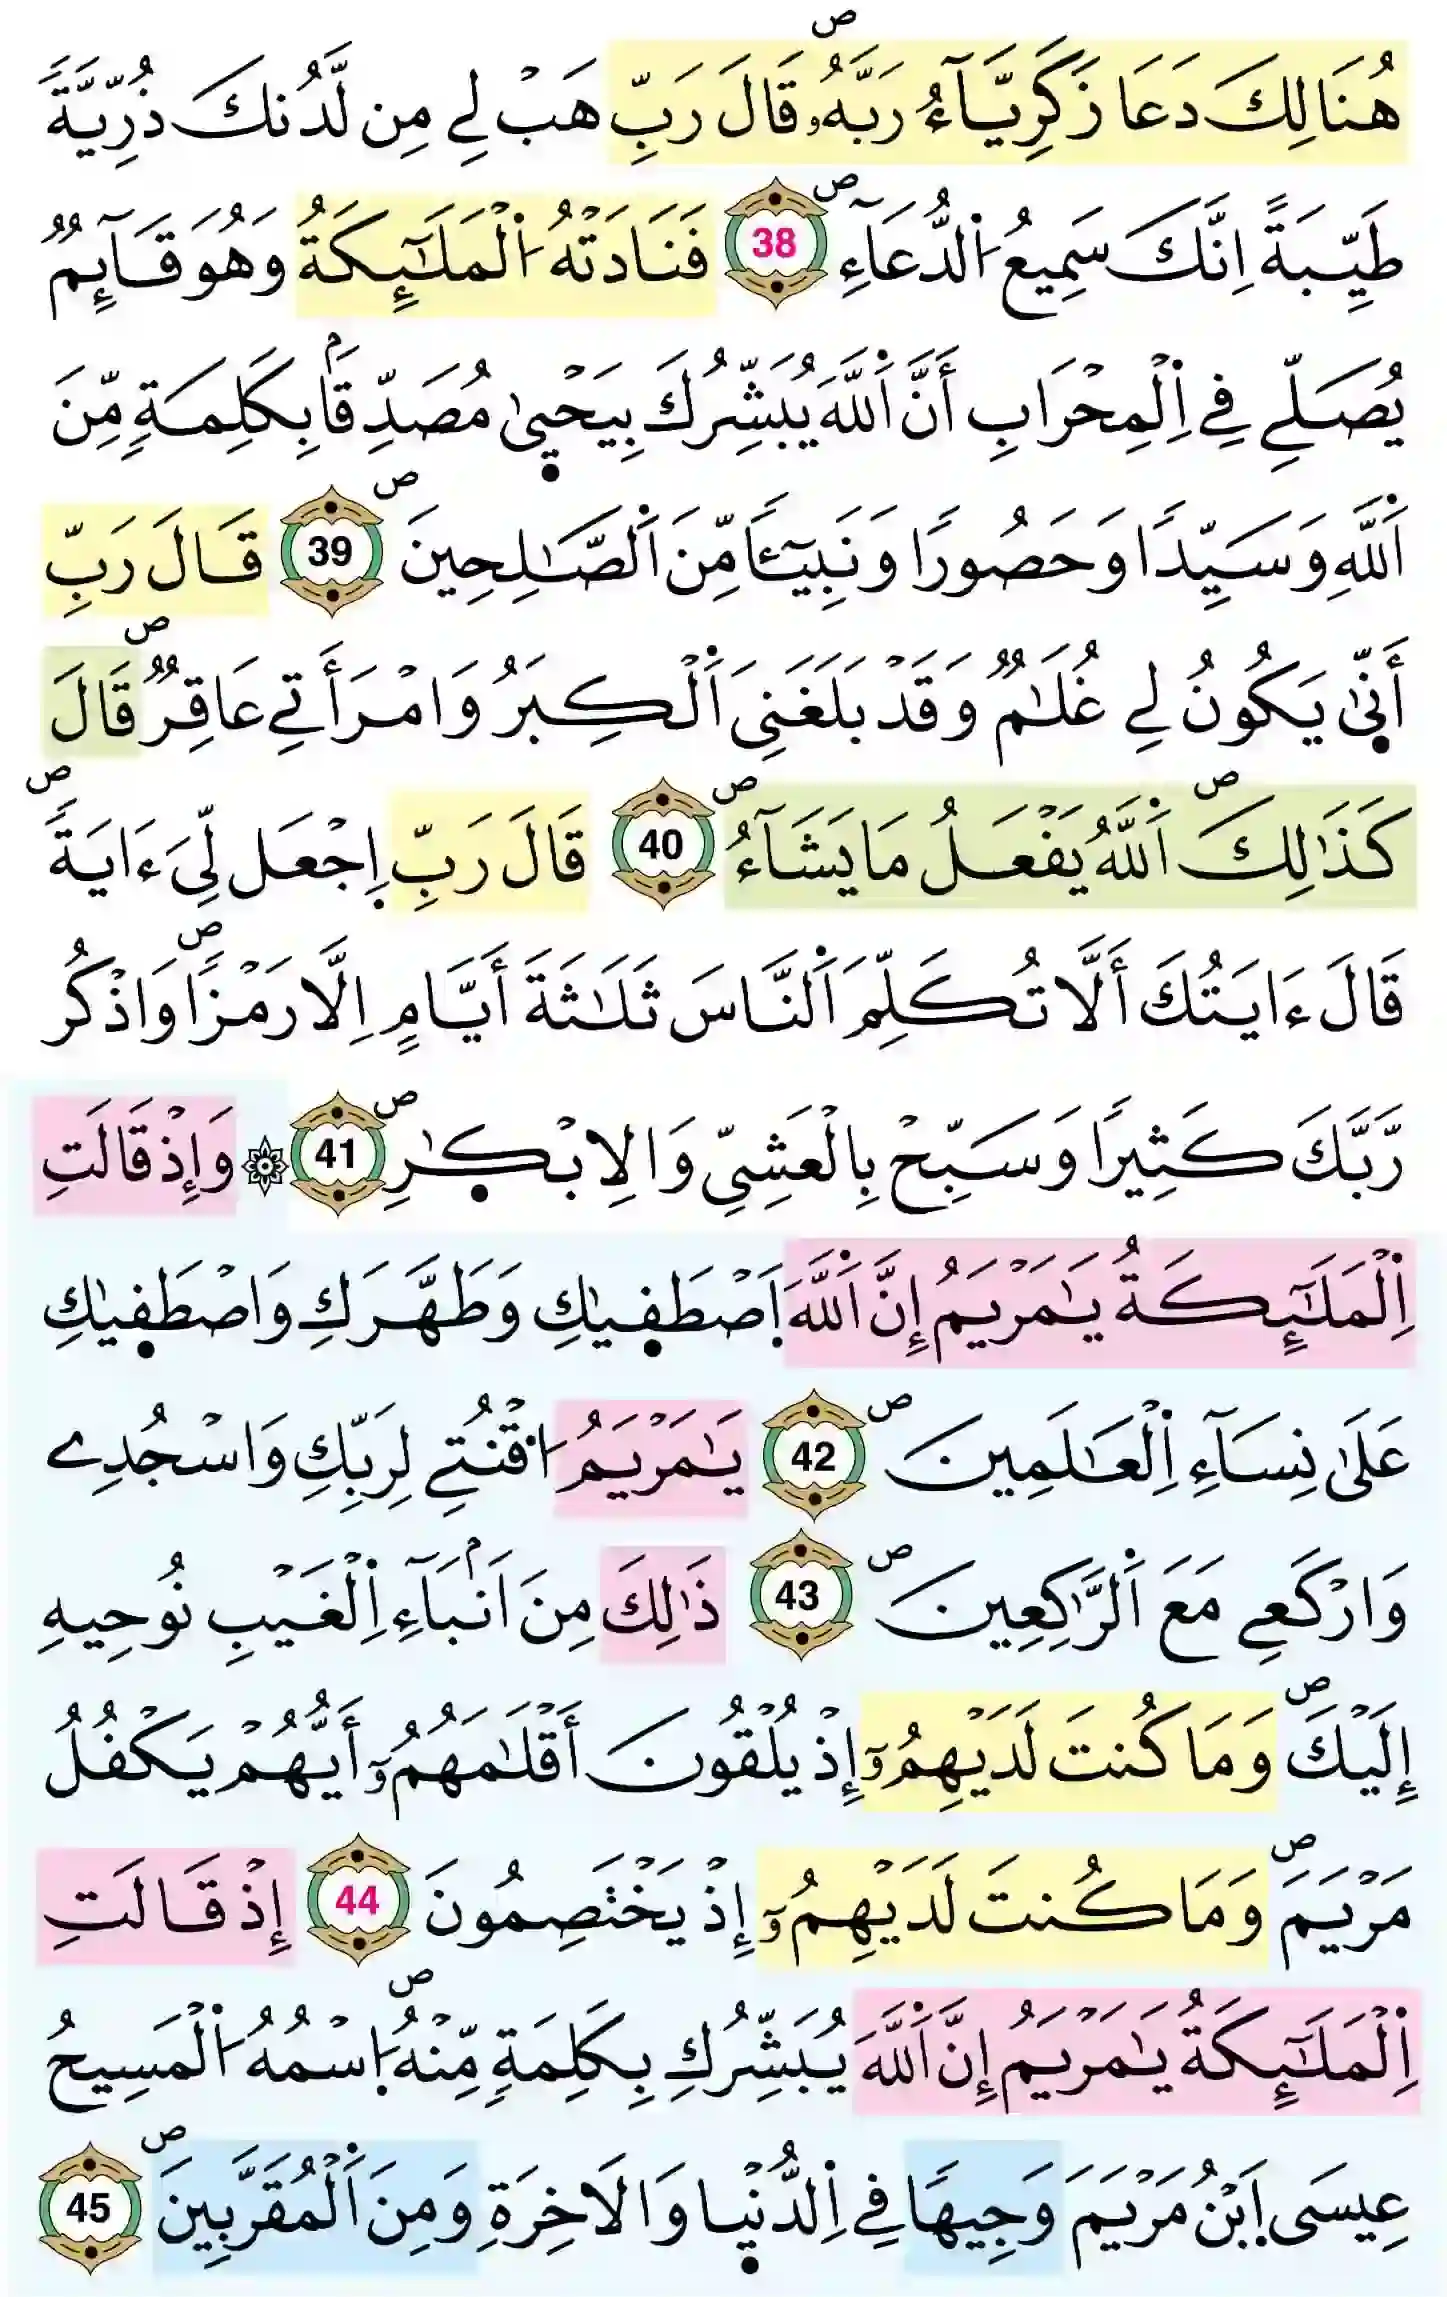 هُنَالِكَ دَعَا زَكَرِيَّآءُ رَبَّهُۥ قَالَ رَبِّ هَبْ لِے مِن لَّدُنكَ ذُرِّيَّةٗ
طَيِّبَةً اِنَّكَ سَمِيعُ اُ۬لدُّعَآءِۖ 38 فَنَادَتْهُ اُ۬لْمَلَٰٓئِكَةُ وَهُوَ قَآئِمٞ
يُصَلِّے فِے اِ۬لْمِحْرَابِ أَنَّ اَ۬للَّهَ يُبَشِّرُكَ بِيَحْيٜىٰ مُصَدِّقاَۢ بِكَلِمَةٖ مِّنَ
اَ۬للَّهِ وَسَيِّداٗ وَحَصُوراٗ وَنَبِيٓـٔاٗ مِّنَ اَ۬لصَّٰلِحِينَۖ 39 قَالَ رَبِّ
أَنّٜىٰ يَكُونُ لِے غُلَٰمٞ وَقَدْ بَلَغَنِيَ اَ۬لْكِبَرُ وَامْرَأَتِے عَاقِرٞۖ قَالَ
كَذَٰلِكَۖ اَ۬للَّهُ يَفْعَلُ مَا يَشَآءُۖ 40 قَالَ رَبِّ اِ۪جْعَل لِّيَ ءَايَةٗۖ
قَالَ ءَايَتُكَ أَلَّا تُكَلِّمَ اَ۬لنَّاسَ ثَلَٰثَةَ أَيَّامٍ اِلَّا رَمْزاٗۖ وَاذْكُر
رَّبَّكَ كَثِيراٗ وَسَبِّحْ بِالْعَشِيِّ وَالِابْكٰٜرِۖ 41 ۞ وَإِذْ قَالَتِ
اِ۬لْمَلَٰٓئِكَةُ يَٰمَرْيَمُ إِنَّ اَ۬للَّهَ اَ۪صْطَفٜيٰكِ وَطَهَّرَكِ وَاصْطَفٜيٰكِ
عَلَىٰ نِسَآءِ اِ۬لْعَٰلَمِينَۖ 42 يَٰمَرْيَمُ اُ۟قْنُتِے لِرَبِّكِ وَاسْجُدِے
وَارْكَعِے مَعَ اَ۬لرَّٰكِعِينَۖ 43 ذَٰلِكَ مِنَ اَنۢبَآءِ اِ۬لْغَيْبِ نُوحِيهِ
إِلَيْكَۖ وَمَا كُنتَ لَدَيْهِمُۥٓ إِذْ يُلْقُونَ أَقْلَٰمَهُمُۥٓ أَيُّهُمْ يَكْفُلُ
مَرْيَمَۖ وَمَا كُنتَ لَدَيْهِمُۥٓ إِذْ يَخْتَصِمُونَ 44 إِذْ قَالَتِ
اِ۬لْمَلَٰٓئِكَةُ يَٰمَرْيَمُ إِنَّ اَ۬للَّهَ يُبَشِّرُكِ بِكَلِمَةٖ مِّنْهُۖ اُ۪سْمُهُ اُ۬لْمَسِيحُ
عِيسَى اَ۪بْنُ مَرْيَمَ وَجِيهاٗ فِے اِ۬لدُّنْيٜا وَالَاخِرَةِ وَمِنَ اَ۬لْمُقَرَّبِينَۖ 45